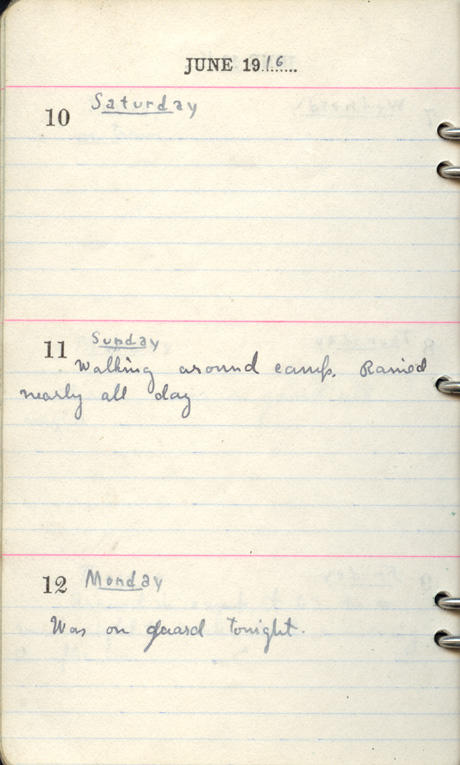 JUNE 1916
10 Saturday
11 Sunday
Walking around camp. Rained
nearly all day
12 Monday
Was on guard tonight.